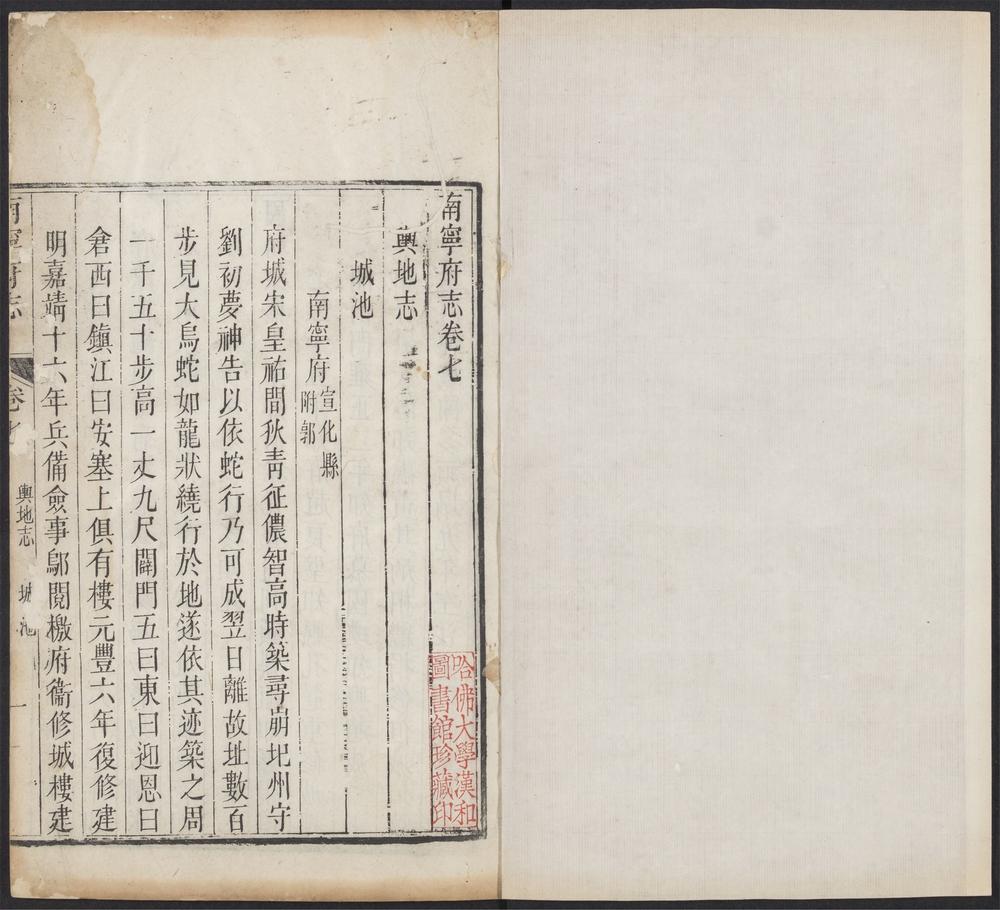 南寧府志卷七
輿地志
城池
南寧府宣化縣
附郭
府城宋皇祐間狄青征儂智高時築尋崩圯州守
劉初夢神告以依蛇行乃可成翌日離故址數百
步見大烏蛇如龍狀繞行於地遂依其迹築之周
一千五十步高一丈九尺闢門五曰東曰迎恩曰
倉西曰鎮江曰安塞上俱有樓元豐六年復修建
明嘉靖十六年兵備僉事鄔閱檄府衞修城樓建
南寧府志 卷七 輿地志 城池 一
哈佛大學漢和
圖書館珍藏印